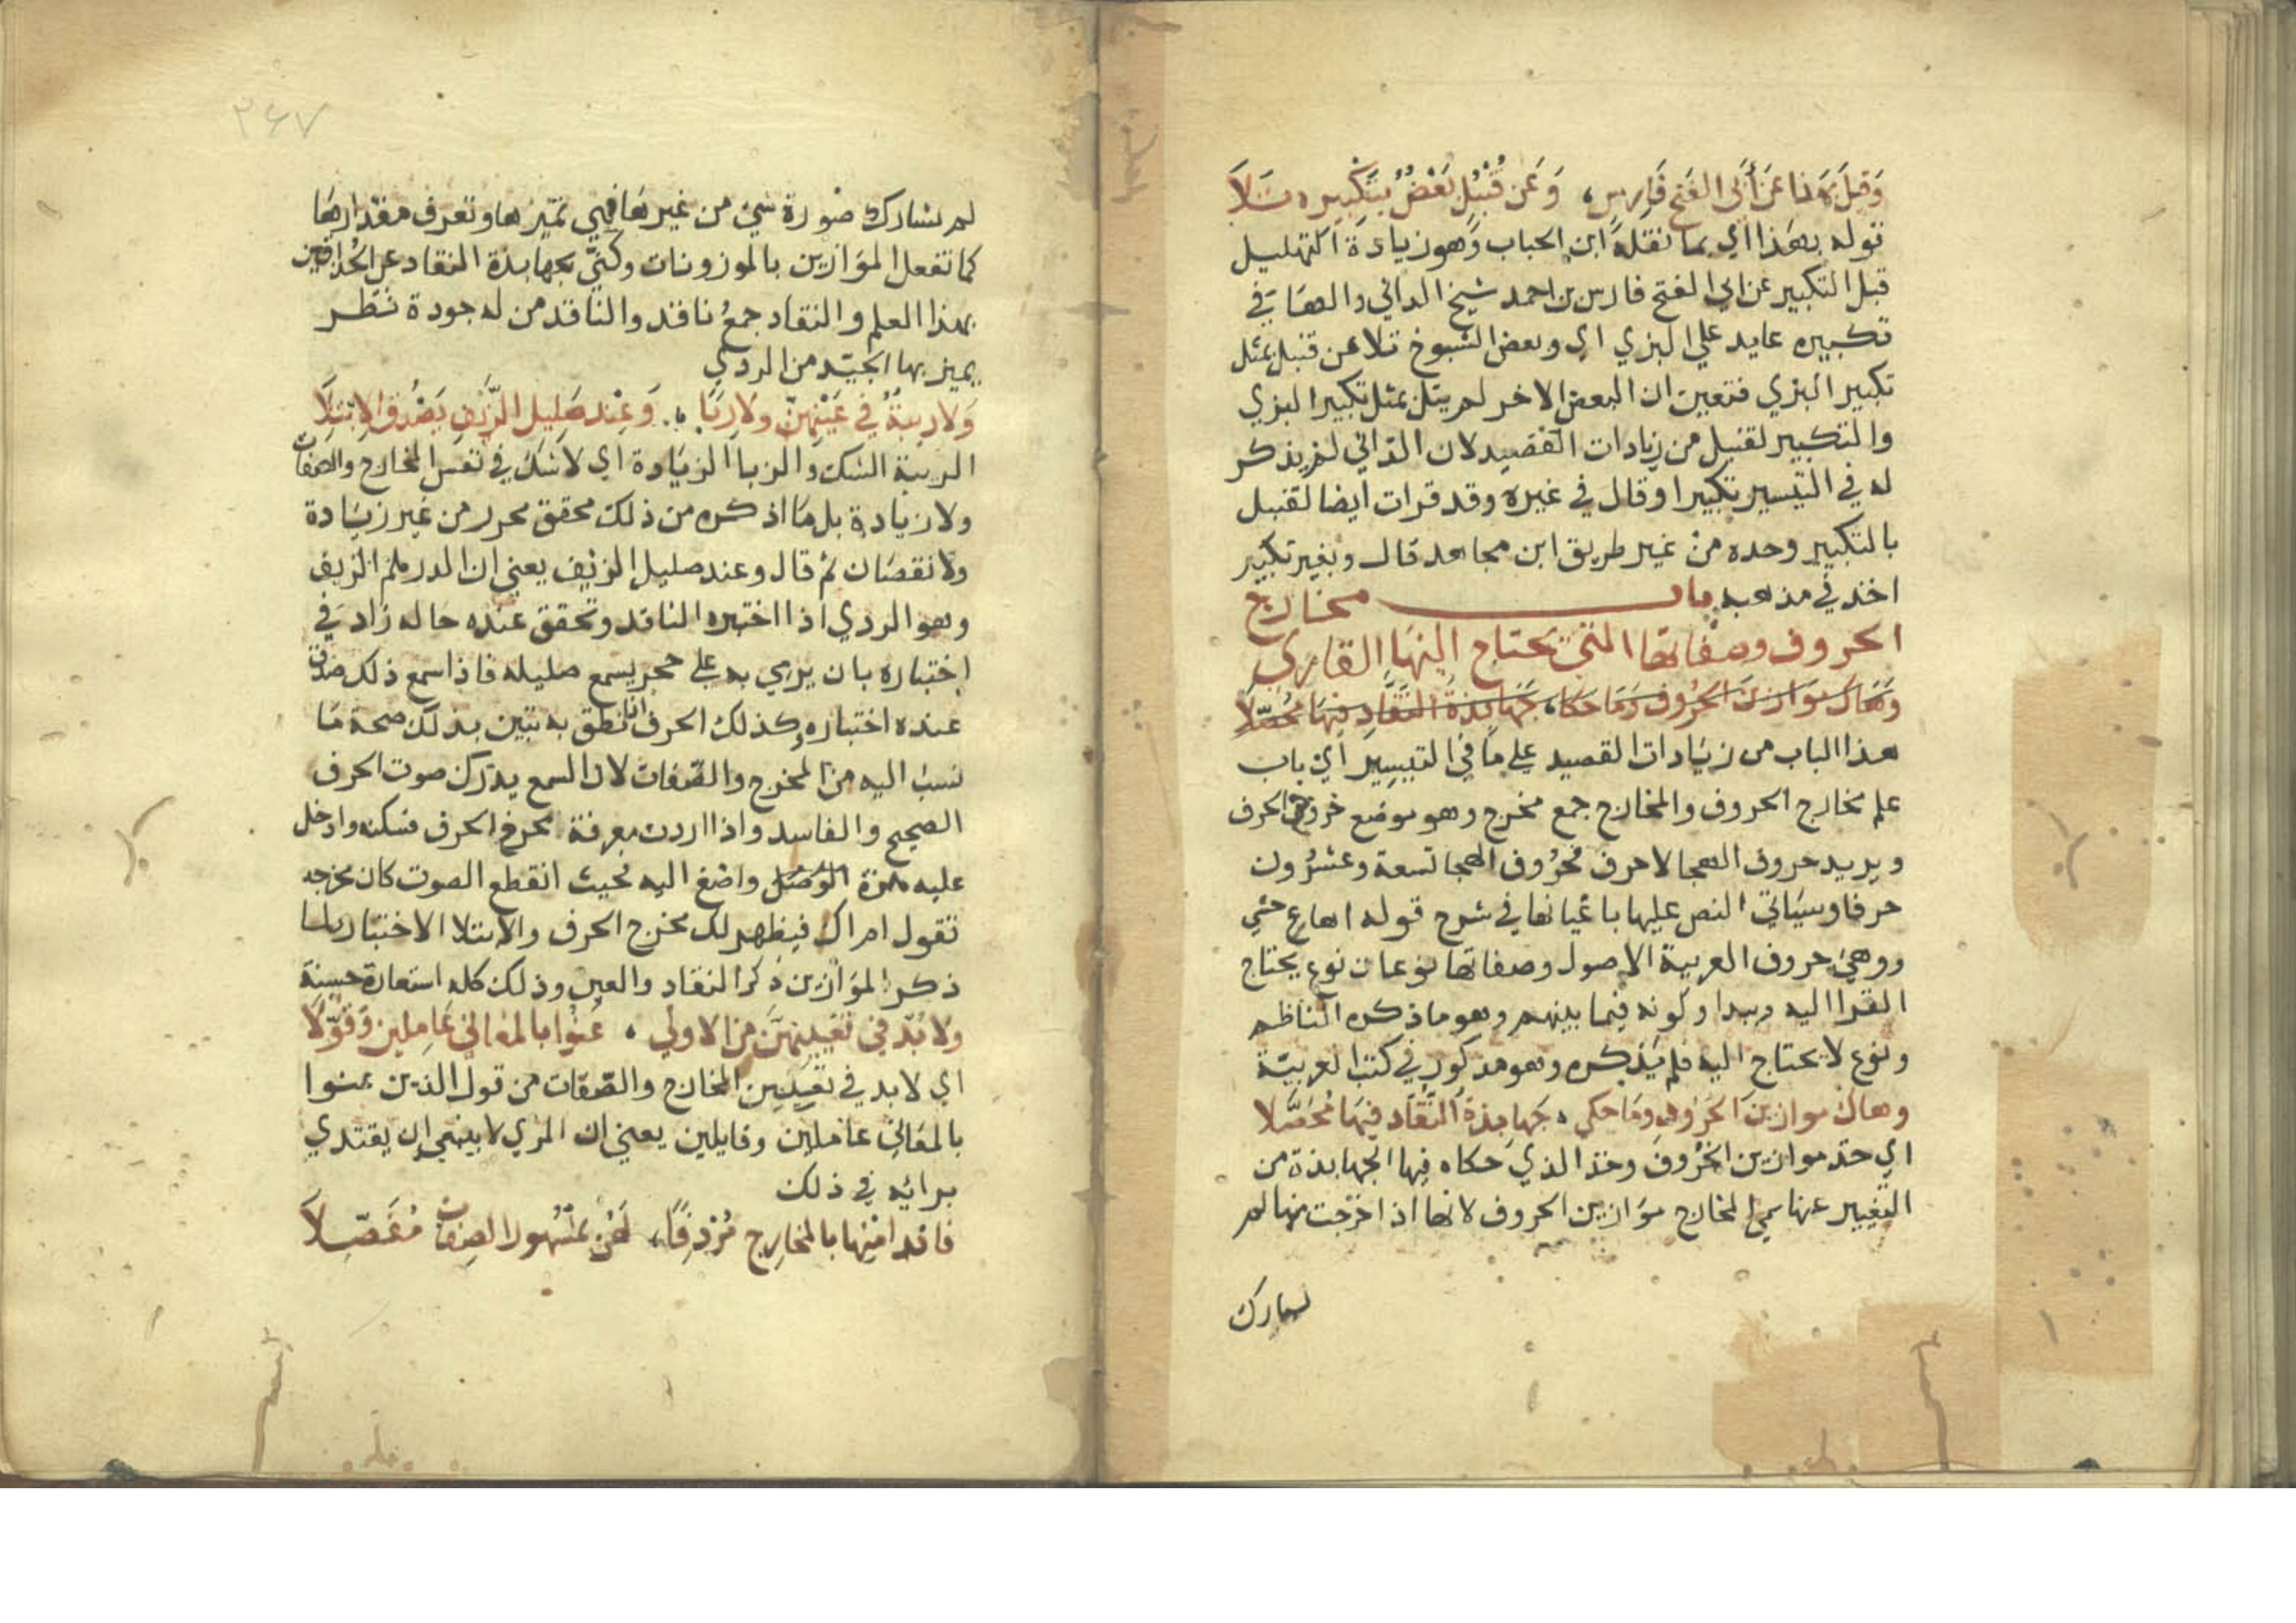 وَقِيلَ بِهَذا عَن أَبي الفَتحِ فَارِسٍ، وَعَن قُنْبُلٍ بَعْضٌ بِتَكْبِيرِه تَلاَ
قوله بهذا اي بما نقله ابن الحباب وهو زيادة التهليل
قبل التكبير عن ابي الفتح فارس بن احمد شيخ الداني والهاء في
تكبيره عايد علي البزي اي وبعض الشيوخ تلا عن قنبل بمثل
تكبير البزي فتعين ان البعض الاخر لم يتل بمثل تكبير البزي
والتكبير لقنبل من زيادات القصيد لان الداني لم يذكر
له في التيسير تكبيرا وقال في غيره وقد قرات ايضا لقنبل
بالتكبير وحده من غير طريق ابن مجاهد قال وبغير تكبير
اخذ في مذهبه باب مخارج
الحروف وصفاتها التي يحتاج اليها القاري
وهاك موازين الحروف وما حكا، جهابذة النقاد فيها محصلا
هذا الباب من زيادات القصيد علي ما في التيسير اي باب
علم مخارج الحروف والمخارج جمع مخرج وهو موضع خروج الحرف
ويريد حروف الهجا لاحرف فحروف الهجا تسعة وعشرون
حرفا وسياتي النص عليها باعيانها في شرح قوله اهاع حشي
ووهي حروف العربية الاصول وصفاتها نوعان نوع يحتاج
القرا اليه ويبداولونه فيما بينهم وهو ما ذكره الناظم
ونوع لا يحتاج اليه فلم يذكره وهو مذكور في كتب العربية
وهاك موازين الحروف وما حكي، جهابذة النقاد فيها محصلا
اي خذ موازين الحروف وخذ الذي حكاه فيها الجهابذة من
التعبير عنها سمي المخارج موازين الحروف لانها اذا خرجت منها لم
لشارك
٣٤٧
لم تشارك صورة شي من غيرها فهي تميزها وتعرف مقدارها
كما تفعل الموازين بالموزونات وكني بجهابذة النقاد عن الحذاقين
بهذا العلم والنقاد جمع ناقد والناقد من له جودة نظر
يميز بها الجيد من الردي
وَلا رِيبَةٌ في عَيْنِهِنّ وَلا رِبَا، وَعِنْد صَلِيلِ الزَّيفِ يَصْدُق الاِبْتِلَا
الريبة الشك والربا الزيادة اي لا شك في نفس المخارج والصفات
ولا زيادة بل ما اذكره من ذلك محقق محرر من غير زيادة
ولا نقصان ثم قال وعند صليل الزيف يعني ان الدرهم الزيف
وهو الردي اذا اختبره الناقد وتحقق عنده حاله زاد في
اختباره بان يرمي به علي حجر يسمع صليله فاذا سمع ذلك صدق
عنده اختباره وكذلك الحرف اذا نطق به تبين بذلك صحة ما
نسب اليه من المخرج والصفات لان السمع يدرك صوت الحرف
الصحيح والفاسد واذا اردت معرفة مخرج الحرف فسكنه وادخل
عليه همزة الوصل واصغ اليه فحيث انقطع الصوت كان مخرجه
تقول ام اك فيظهر لك مخرج الحرف والابتلا الاختبار ولما
ذكر الموازين ذكر النقاد والعين وذلك كله استعارة حسنة
ولا بد في تعيينهن من الاولي، عنوا بالمعاني عاملين وقولا
اي لا بد في تعيين المخارج والصفات من قول الذين عنوا
بالمعاني عاملين وقايلين يعني ان المري لا ينبغي ان يقتدي
برائه في ذلك
فابدا منها بالمخارج مردفا، لهن بمشهور الصفات مفصلا